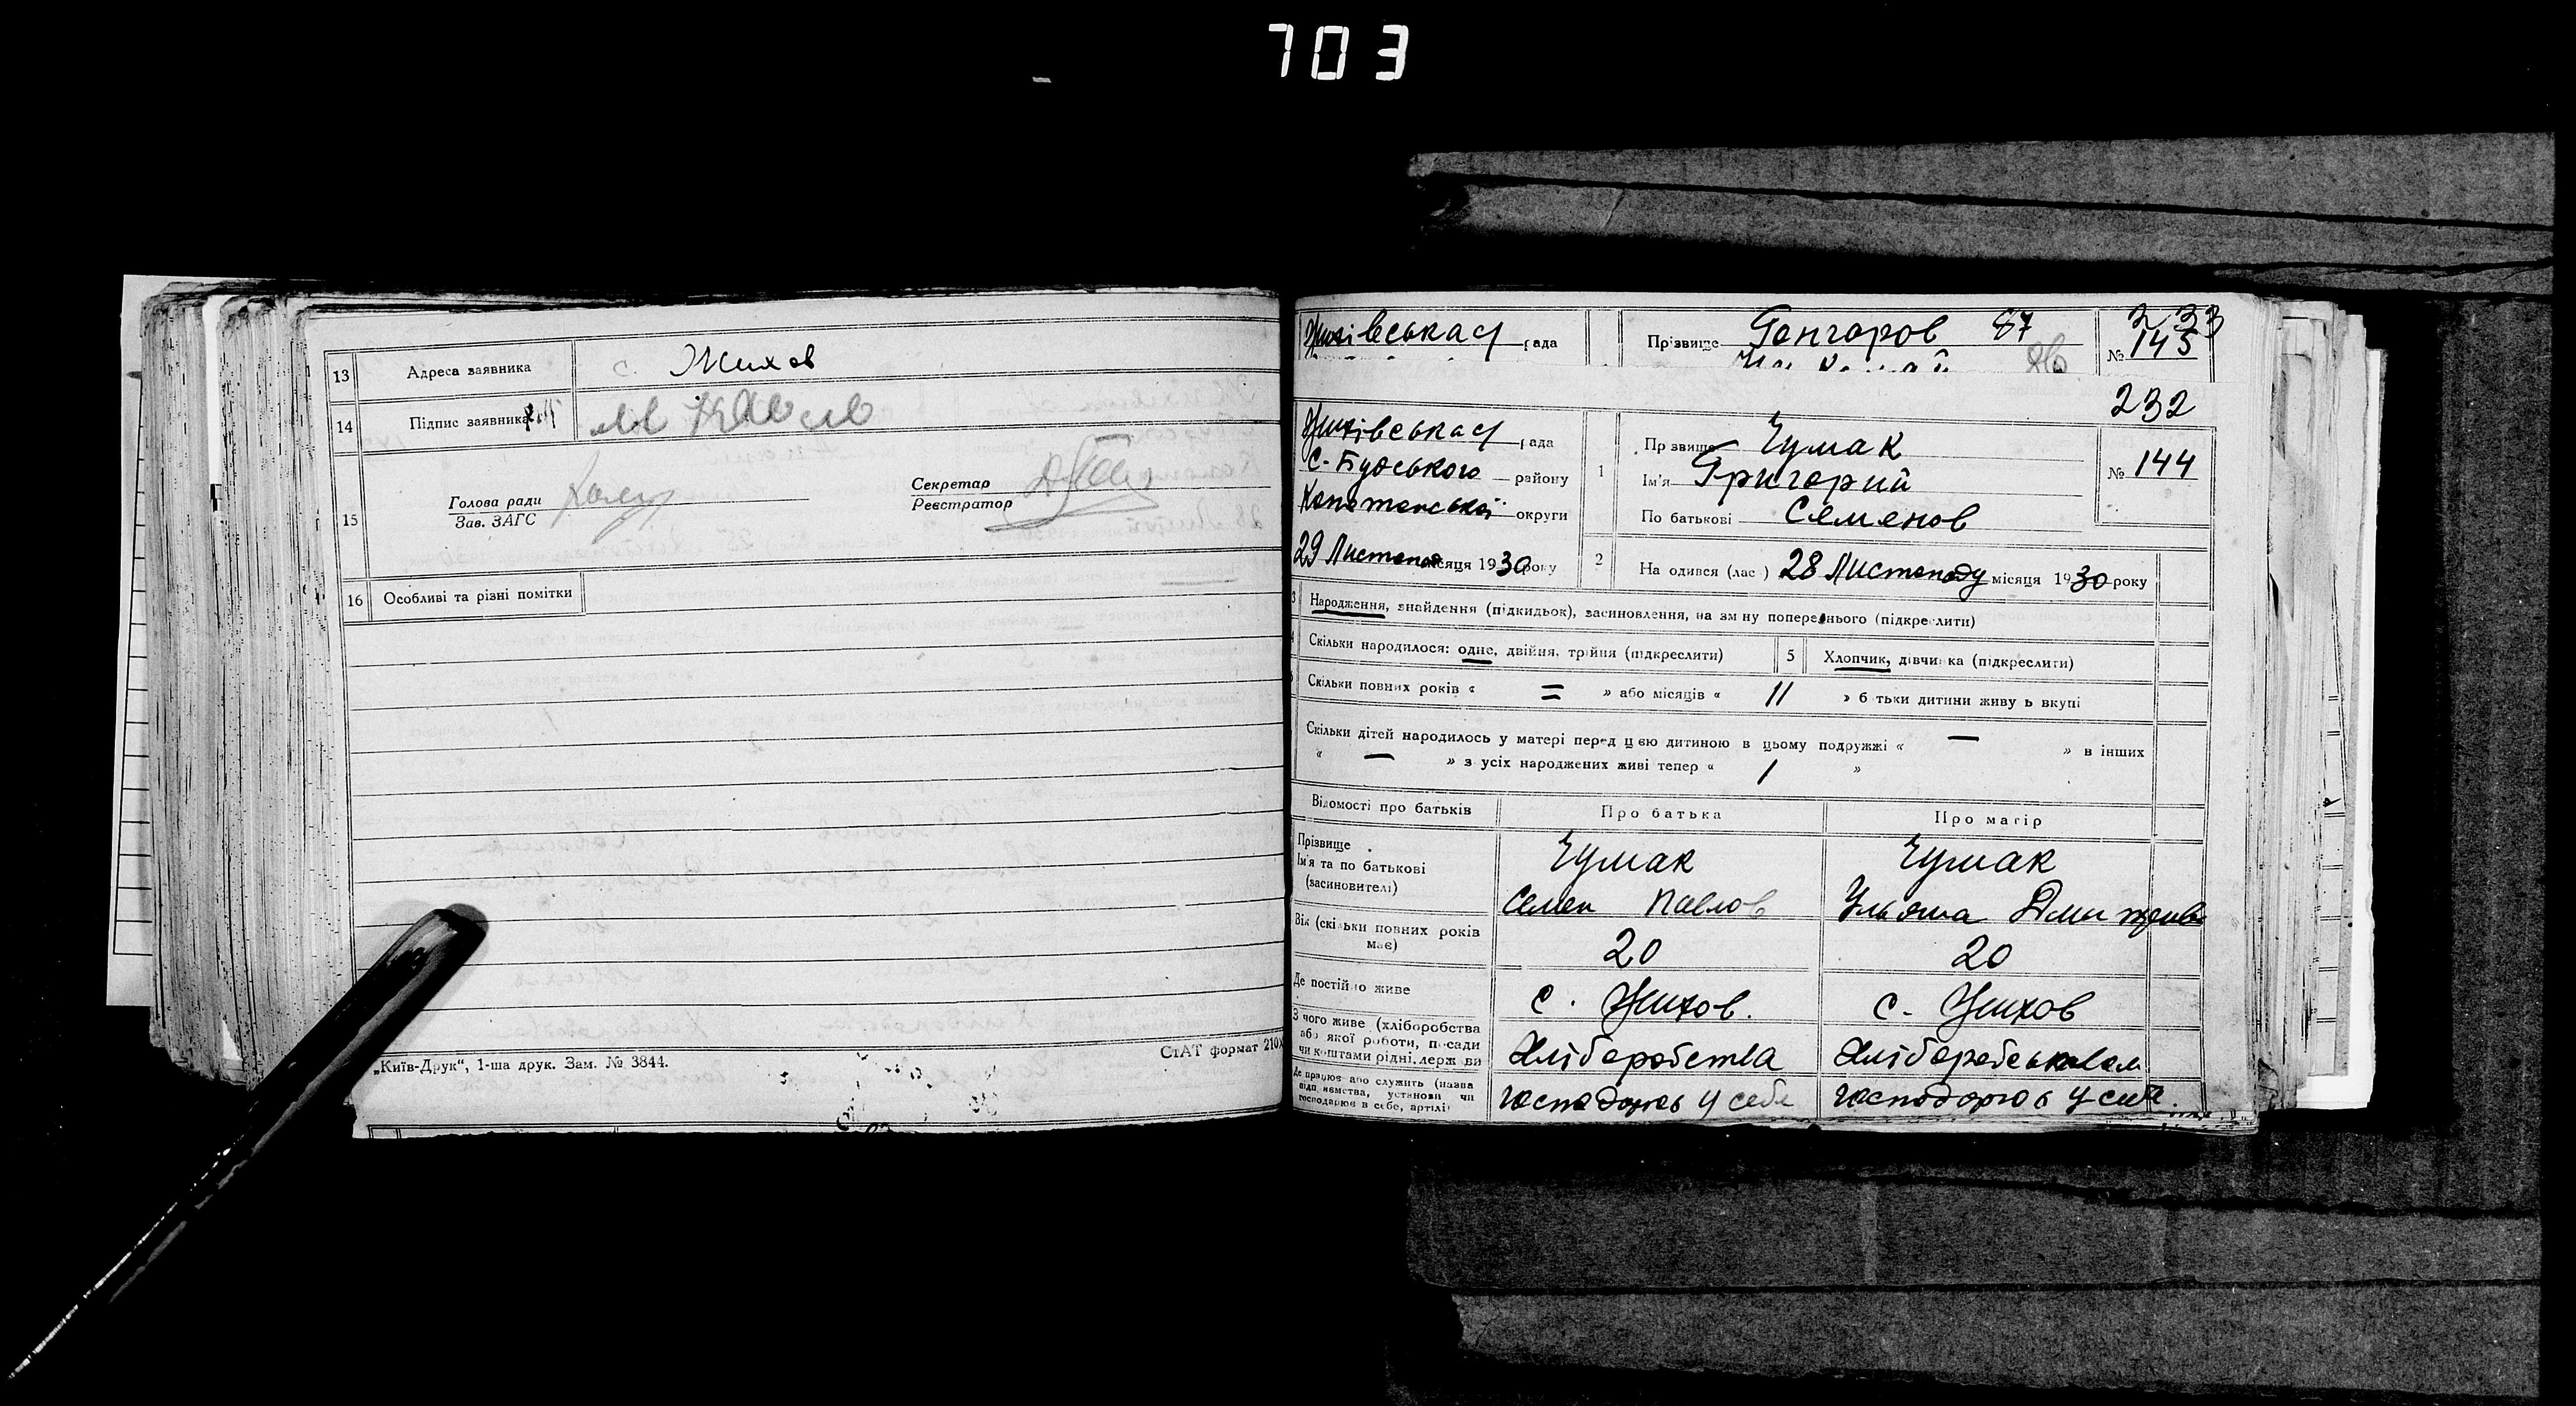 703
13 Адреса заявника с. Жихов
14 Підпис заявника
15 Голова ради
Зав. ЗАГС
Секретар
Реєстратор
16 Особливі та різні помітки
„Київ-Друк“, 1-ша друк. Зам. № 3844.
СтАТ формат 210
Жихівська рада Прізвище Гончаров 87 233
№ 145
232
Жихівська рада
С-Будського району
Конотопської округи
29 Листопад місяця 1930 року
1 Прзвище Чумак № 144
Ім'я Григорий
По батькові Семенов
2 На одився (лас) 28 Листопаду місяця 1930 року
3 Народження, знайдення (підкидьок), засиновлення, на зм ну попереднього (підкреслити)
Скільки народилося: одне, двійня, трійня (підкреслити) 5 Хлопчик, дівчинка (підкреслити)
Скільки повних років « = » або місяців « 11 » б тьки дитини живу ь вкупі
Скільки дітей народилось у матері перед цією дитиною в цьому подружжі « — » в інших
« — » з усіх народжених живі тепер « 1 »
Відомості про батьків Про батька Про матір
Прізвище Чумак Чумак
Ім'я та по батькові
(засиновителі) Семен Павлов Ульяна
Вік (скільки повних років
має) 20 20
Де постійно живе с. Жихов. с. Жихов
З чого живе (хліборобства
або якої роботи, посади
чи коштами рідні, держ ви Хліборобства
Де працює або служить (назва
підп иємства, установи чи
господарює в себе, артілі) у себе у себе